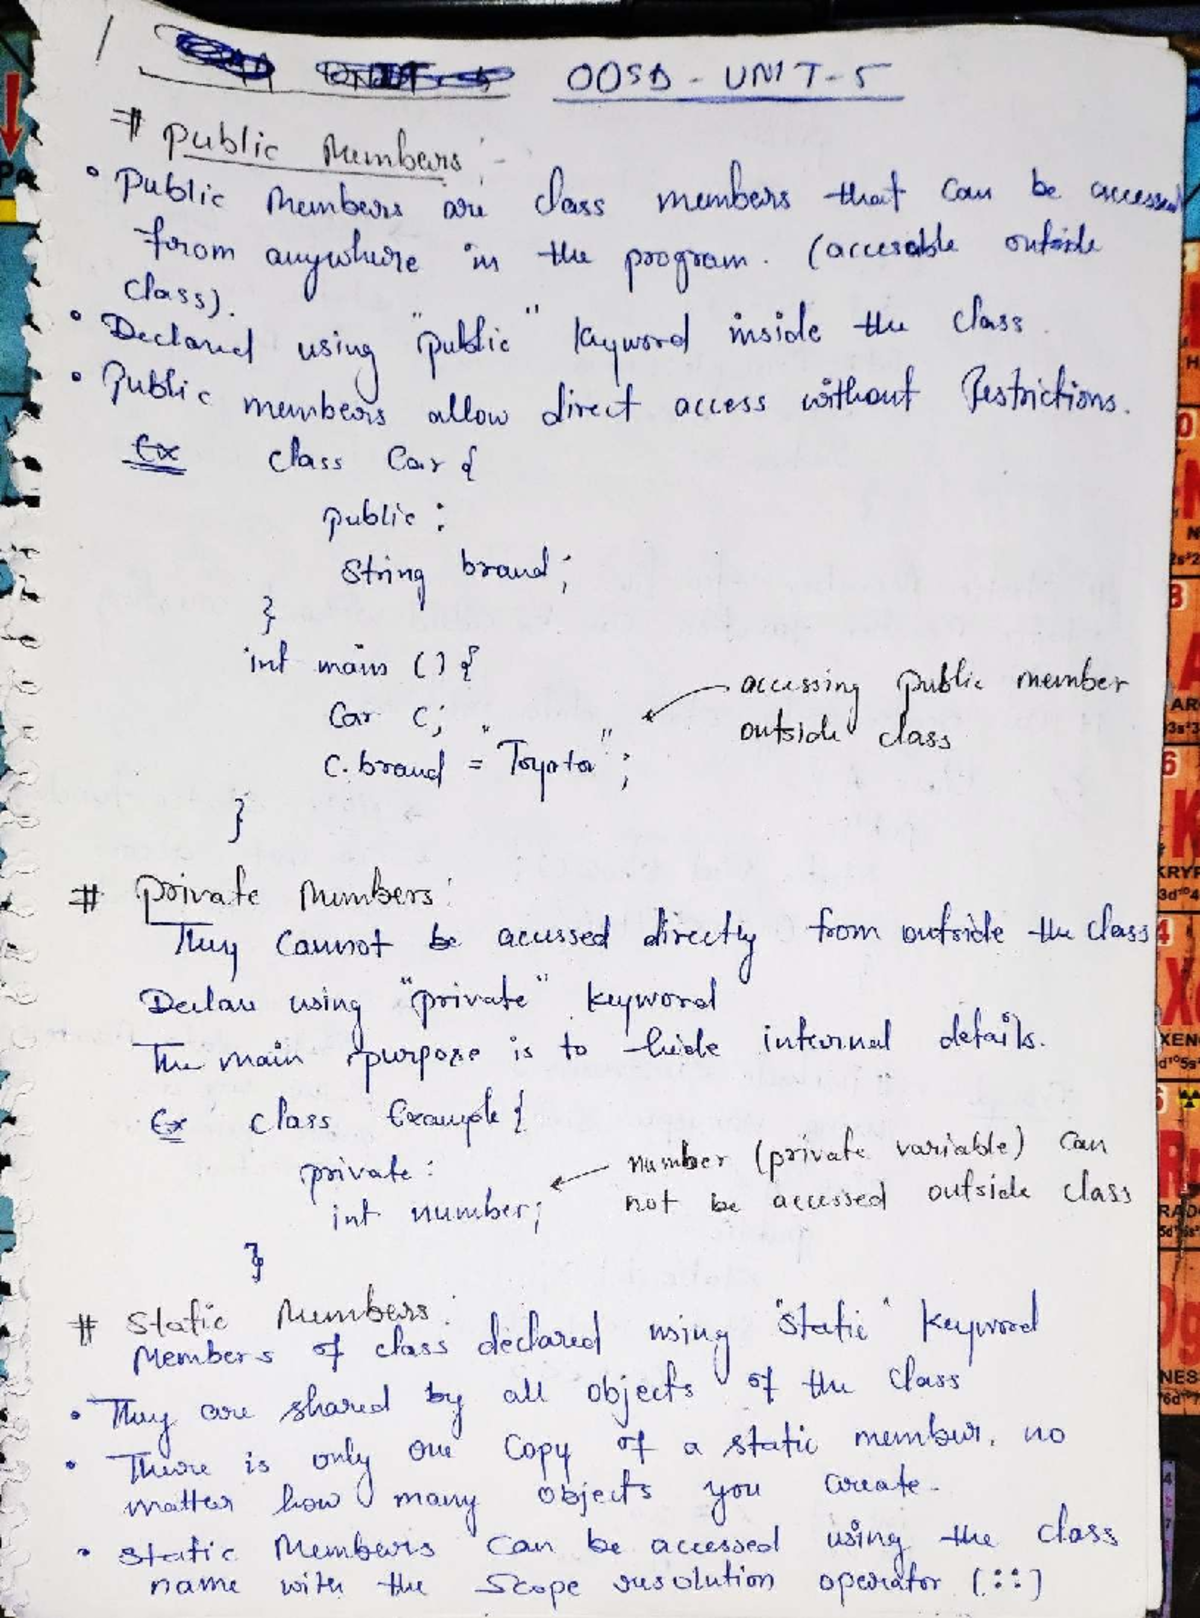 OOSD - UNIT-5
# Public Members :-
• Public Members are class members that can be accessed
from anywhere in the program. (accesable outside
class).
• Declared using "public" keyword inside the class
• Public members allow direct access without Restrictions.
Ex class Car {
public :
String brand;
}
int main () {
Car c;
accessing public member
outside class
c.brand = "Toyota";
}
# Private Members:
They cannot be acussed directly from outside the class
Declare using "private" keyword
The main purpose is to hide internal details.
Ex class Example {
private :
int number;
number (private variable) can
not be accessed outside class
}
# Static Members:
Members of class declared using "static" keyword
• They are shared by all objects of the class
• There is only one copy of a static member, no
matter how many objects you create.
• Static Members can be accessed using the class
name with the scope resolution operator (::)
H
N
AR
KRYP
3d¹⁰4
XEN
RAD
NES